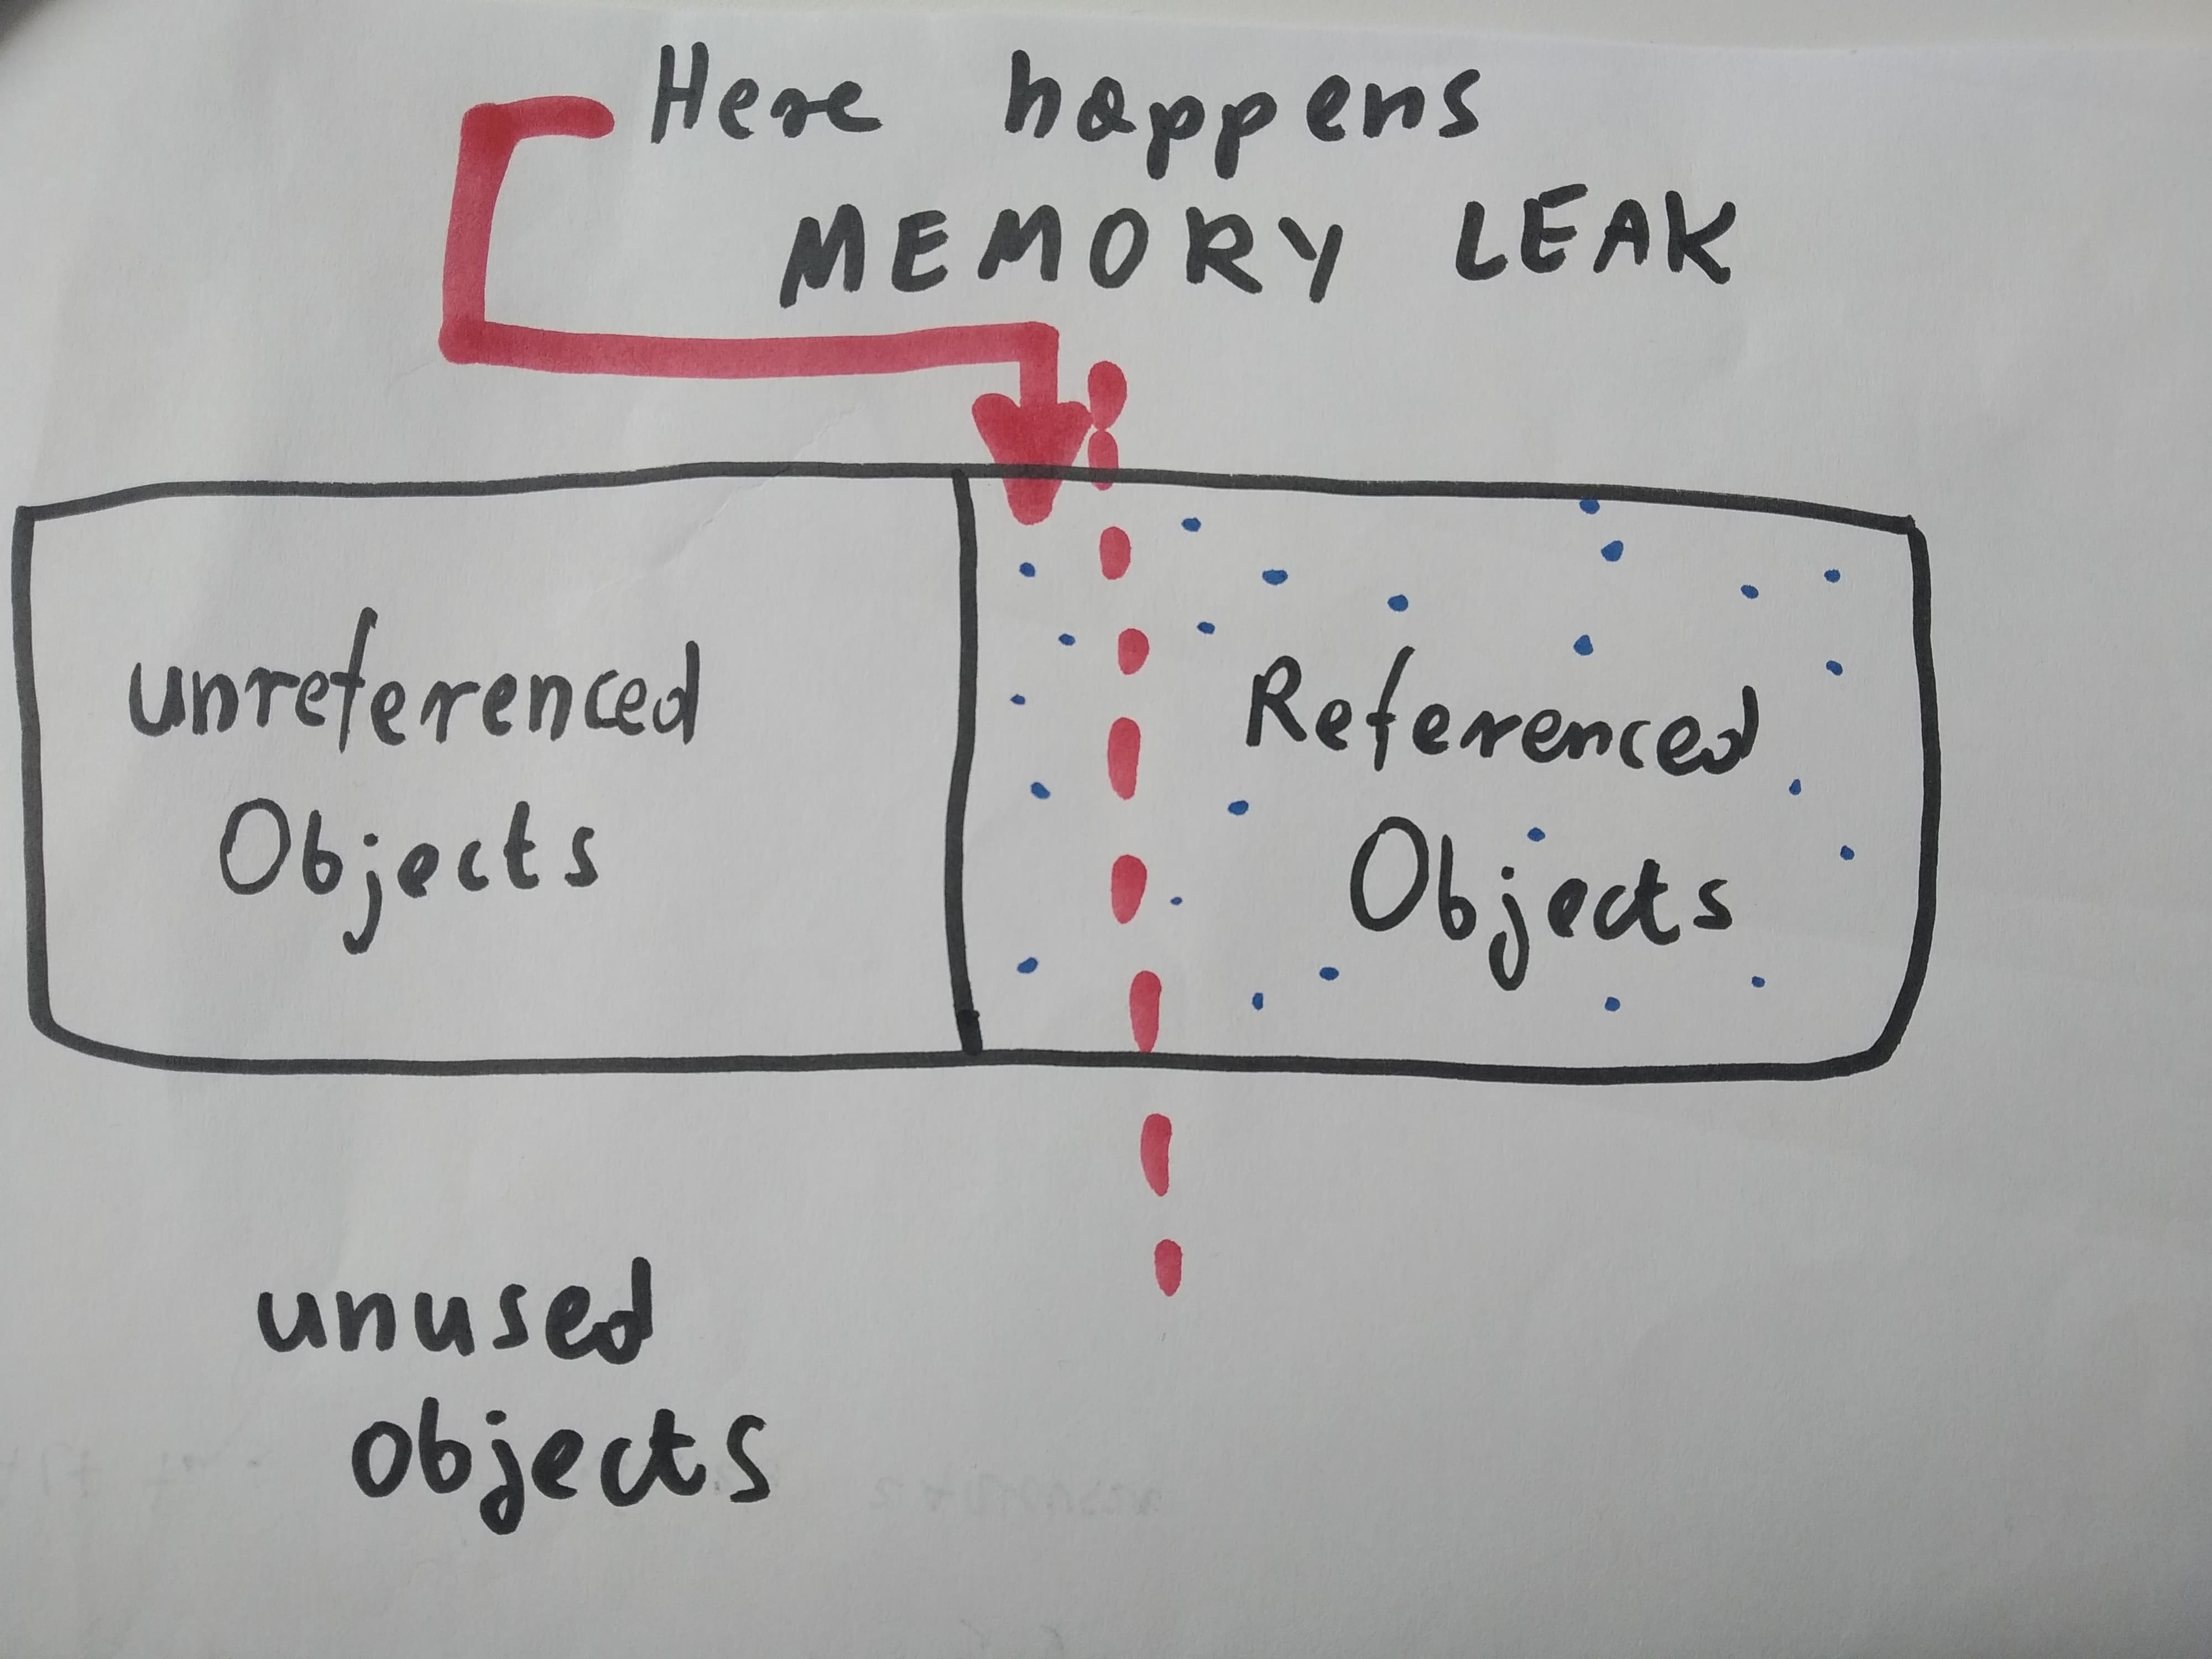 Here happens
MEMORY LEAK
unreferenced
Objects
Referenced
Objects
unused
objects